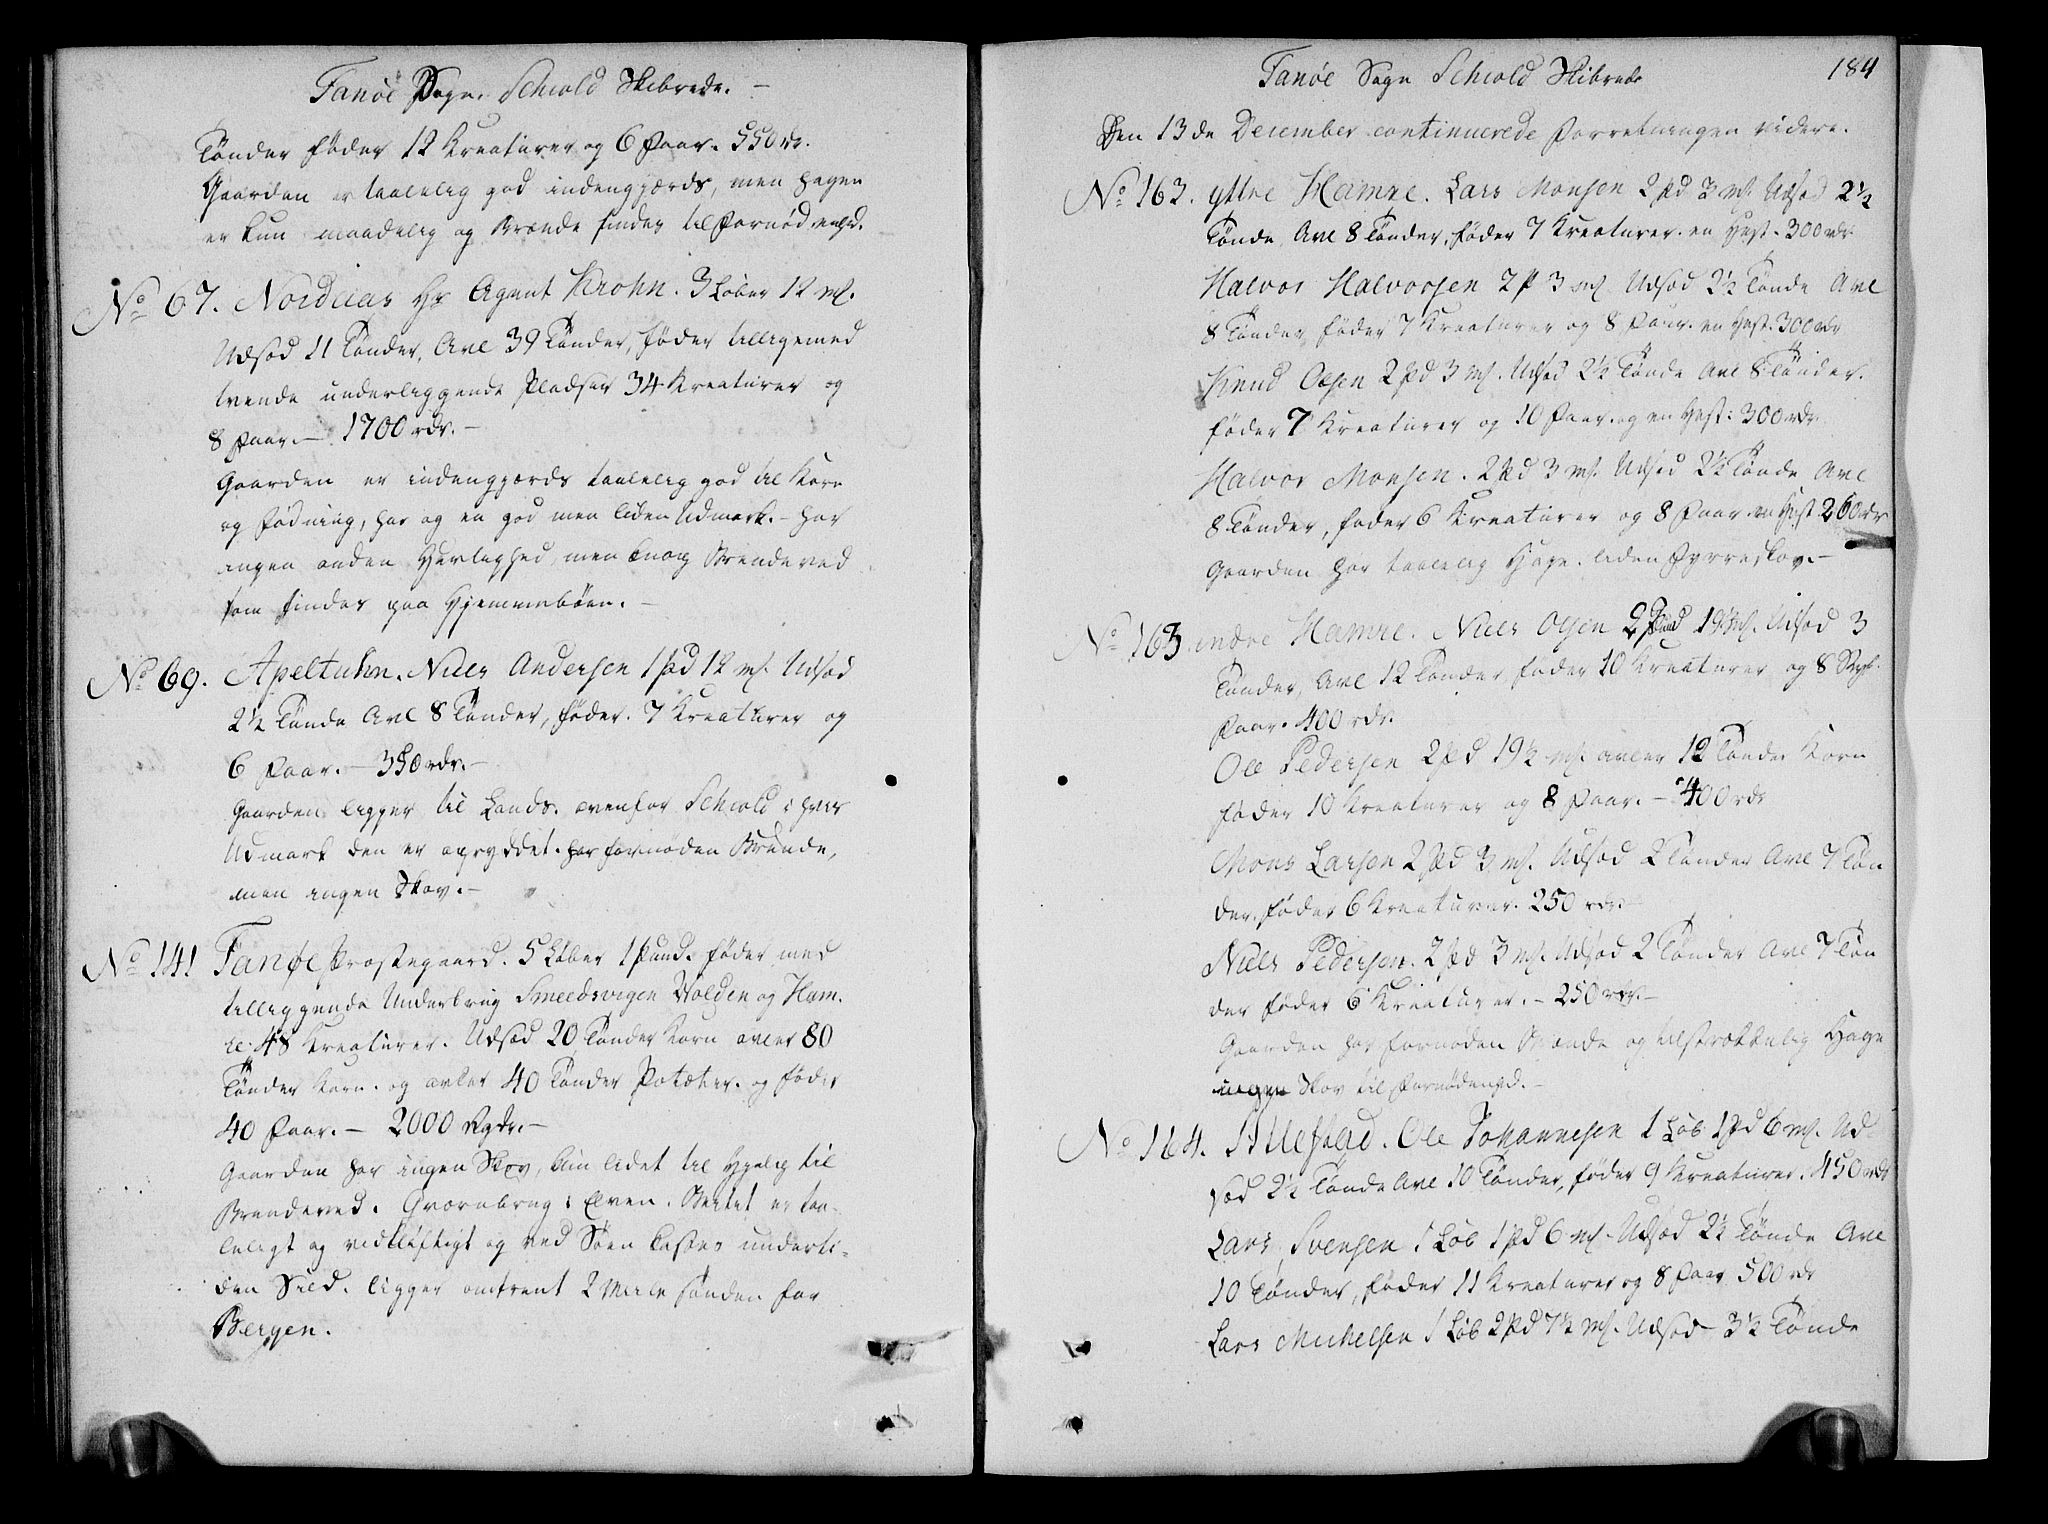 Fanöe Sogn. Schiold Skibrede. —
Tönder föder 12 Kreaturer og 6 Faar. 550 rdr.
Gaarden er taalelig god indengjærds, men hagen
er kun maadelig og Brænde findes til Fornödenhed.
No 67. Nordaas Hr Agent Krohn. 3 Löber 12 mk.
Udsæd 11 Tönder, Avl 39 Tönder, föder tilligemed
tvende underliggende Pladser 34 Kreaturer og
8 Faar. — 1700 rdr. —
Gaarden er indengjærds taalelig god til Korn
og Födning, har og en god men liden Udmark. — har
ingen anden Herlighed, men knap Brendeved
som findes paa Hjemmeböen. —
No 69. Apeltuhn. Niels Andersen 1 pd 12 mk. Udsæd
2½ Tönde Avl 8 Tönder, föder 7 Kreaturer og
6 Faar. — 350 rdr. —
Gaarden ligger til Lands. ovenfor Schiold i hvis
Udmark den er opryddet. har fornöden Brende,
men ingen Skov. —
No 141 Fanöe Præstegaard. 5 Löber 1 Pund. föder med
tilliggende Underbrug Smeedsvigen Volden og Ham-
re 48 Kreaturer. Udsæd 20 Tönder Korn avler 80
Tönder Korn. og avler 40 Tönder Potæter. og föder
40 Faar. — 2000 Rdr. —
Gaarden har ingen Skov, kun lidet til
Brendeved. Qværnbrug i Elven. Beitet er taa-
leligt og vidtlöftigt og ved Söen kastes underti-
den Sild. ligger omtrent 2 Mile sönden for
Bergen.
184
Fanöe Sogn Schiold Skibrede
Den 13de December continuerede Forretningen videre.
No 163. yttre Hamre. Lars Monsen 2 pd 3 mk. Udsæd 2½
Tönde Avl 8 Tönder, föder 7 Kreaturer. en Hest. 300 rdr
Halvor Halvorsen 2 p 3 mk Udsæd 2½ Tönde Avl
8 Tönder föder 7 Kreaturer og 8 Faar. en Hest. 300 rdr
Knud Olsen 2 pd 3 mk. Udsæd 2½ Tönde Avl 8 Tönder.
föder 7 Kreaturer og 10 Faar. og en Hest: 300 rdr.
Halvor Monsen. 2 pd 3 mk. Udsæd 2½ Tönde Avl
8 Tönder, föder 6 Kreaturer og 8 Faar en Hest 260 rdr
Gaarden har taalelig Hage. liden Fyrreskov. —
No 163 indre Hamre. Niels Olsen 2 Pund 19½ mk. Udsæd 3
Tönder, Avl 12 Tönder föder 10 Kreaturer og 8 Stk.
Faar. 400 rdr.
Ole Pedersen 2 pd 19½ mk. avler 12 Tönder Korn
föder 10 Kreaturer og 8 Faar. — 400 rdr
Mons Larsen 2 pd 3 mk. Udsæd 2 Tönder Avl 7 Tön
der, föder 6 Kreaturer. 250 rdr.
Niels Pedersen. 2 pd 3 mk. Udsæd 2 Tönder Avl 7 Tön
der föder 6 Kreaturer. — 250 rdr. —
Gaarden har fornöden Brænde og tilstrækkelig Hage
ingen Skov til Fornödenhed. —
No 164. Ole Johannesen 1 Löb 1 pd 6 mk. Ud-
sæd 2½ Tönde Avl 10 Tönder, föder 9 Kreaturer. 450 rdr
Lars Svensen 1 Löb 1 pd 6 mk. Udsæd 2½ Tönde Avl
10 Tönder, föder 11 Kreaturer og 8 Faar 500 rdr
Lars Michelsen 1 Löb 2 pd 7½ mk. Udsæd 3½ Tönde